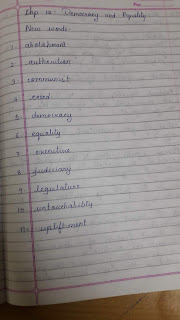 Chp 12: Democracy and Equality
New words-
1 abolishment
2
3 communist
4 creed
5. democracy
6 equality
7 executive
8 judiciary
9. legislature
10. untouchability
11. upliftment